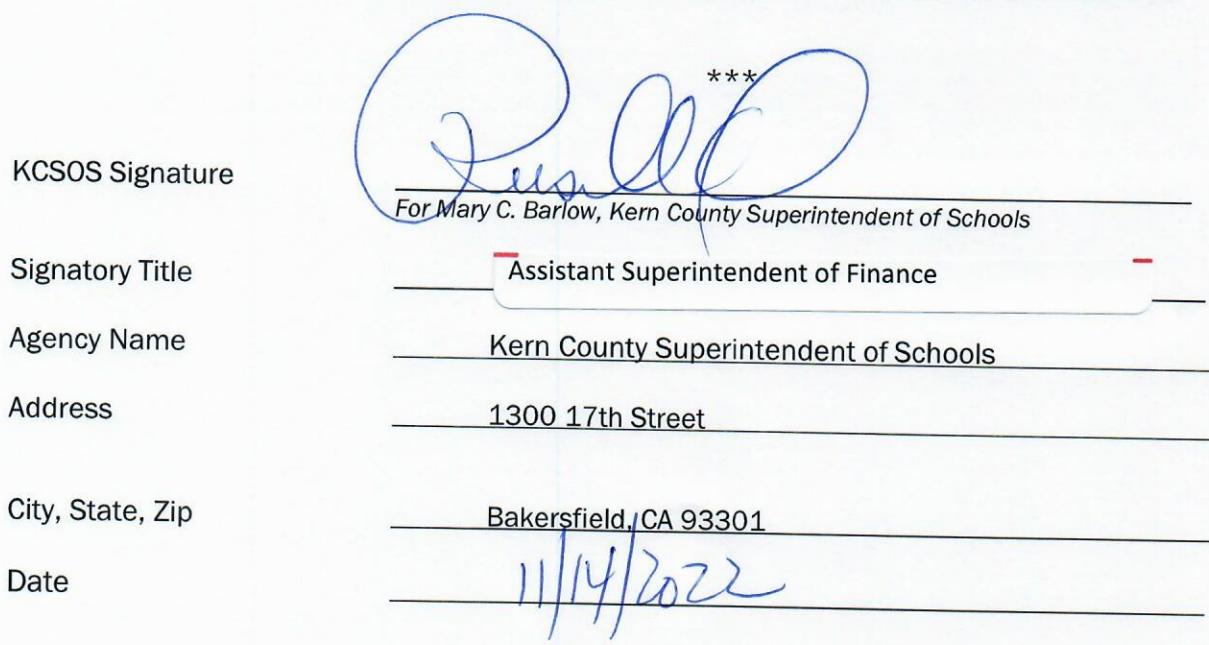 ***
KCSOS Signature
For Mary C. Barlow, Kern County Superintendent of Schools
Signatory Title Assistant Superintendent of Finance
Agency Name Kern County Superintendent of Schools
Address 1300 17th Street
City, State, Zip Bakersfield, CA 93301
Date 11/14/2022